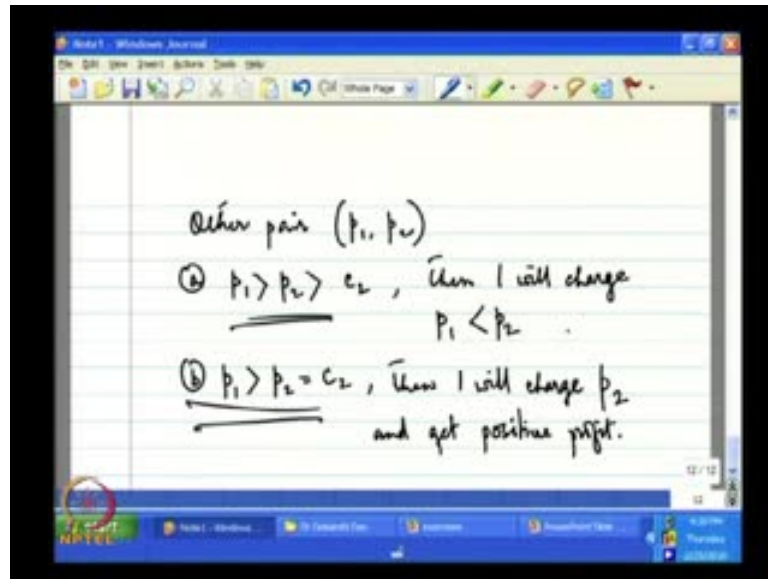 Note1 - Windows Journal
File Edit View Insert Actions Tools Help
Whole Page
Other pair (p₁, p₂)
ⓐ p₁ > p₂ > c₂ , then 1 will charge
p₁ < p₂ .
ⓑ p₁ > p₂ = c₂ , then 1 will charge p₂
and get positive profit.
12 / 12
12
NPTEL
Note1 - Windows...
Thursday